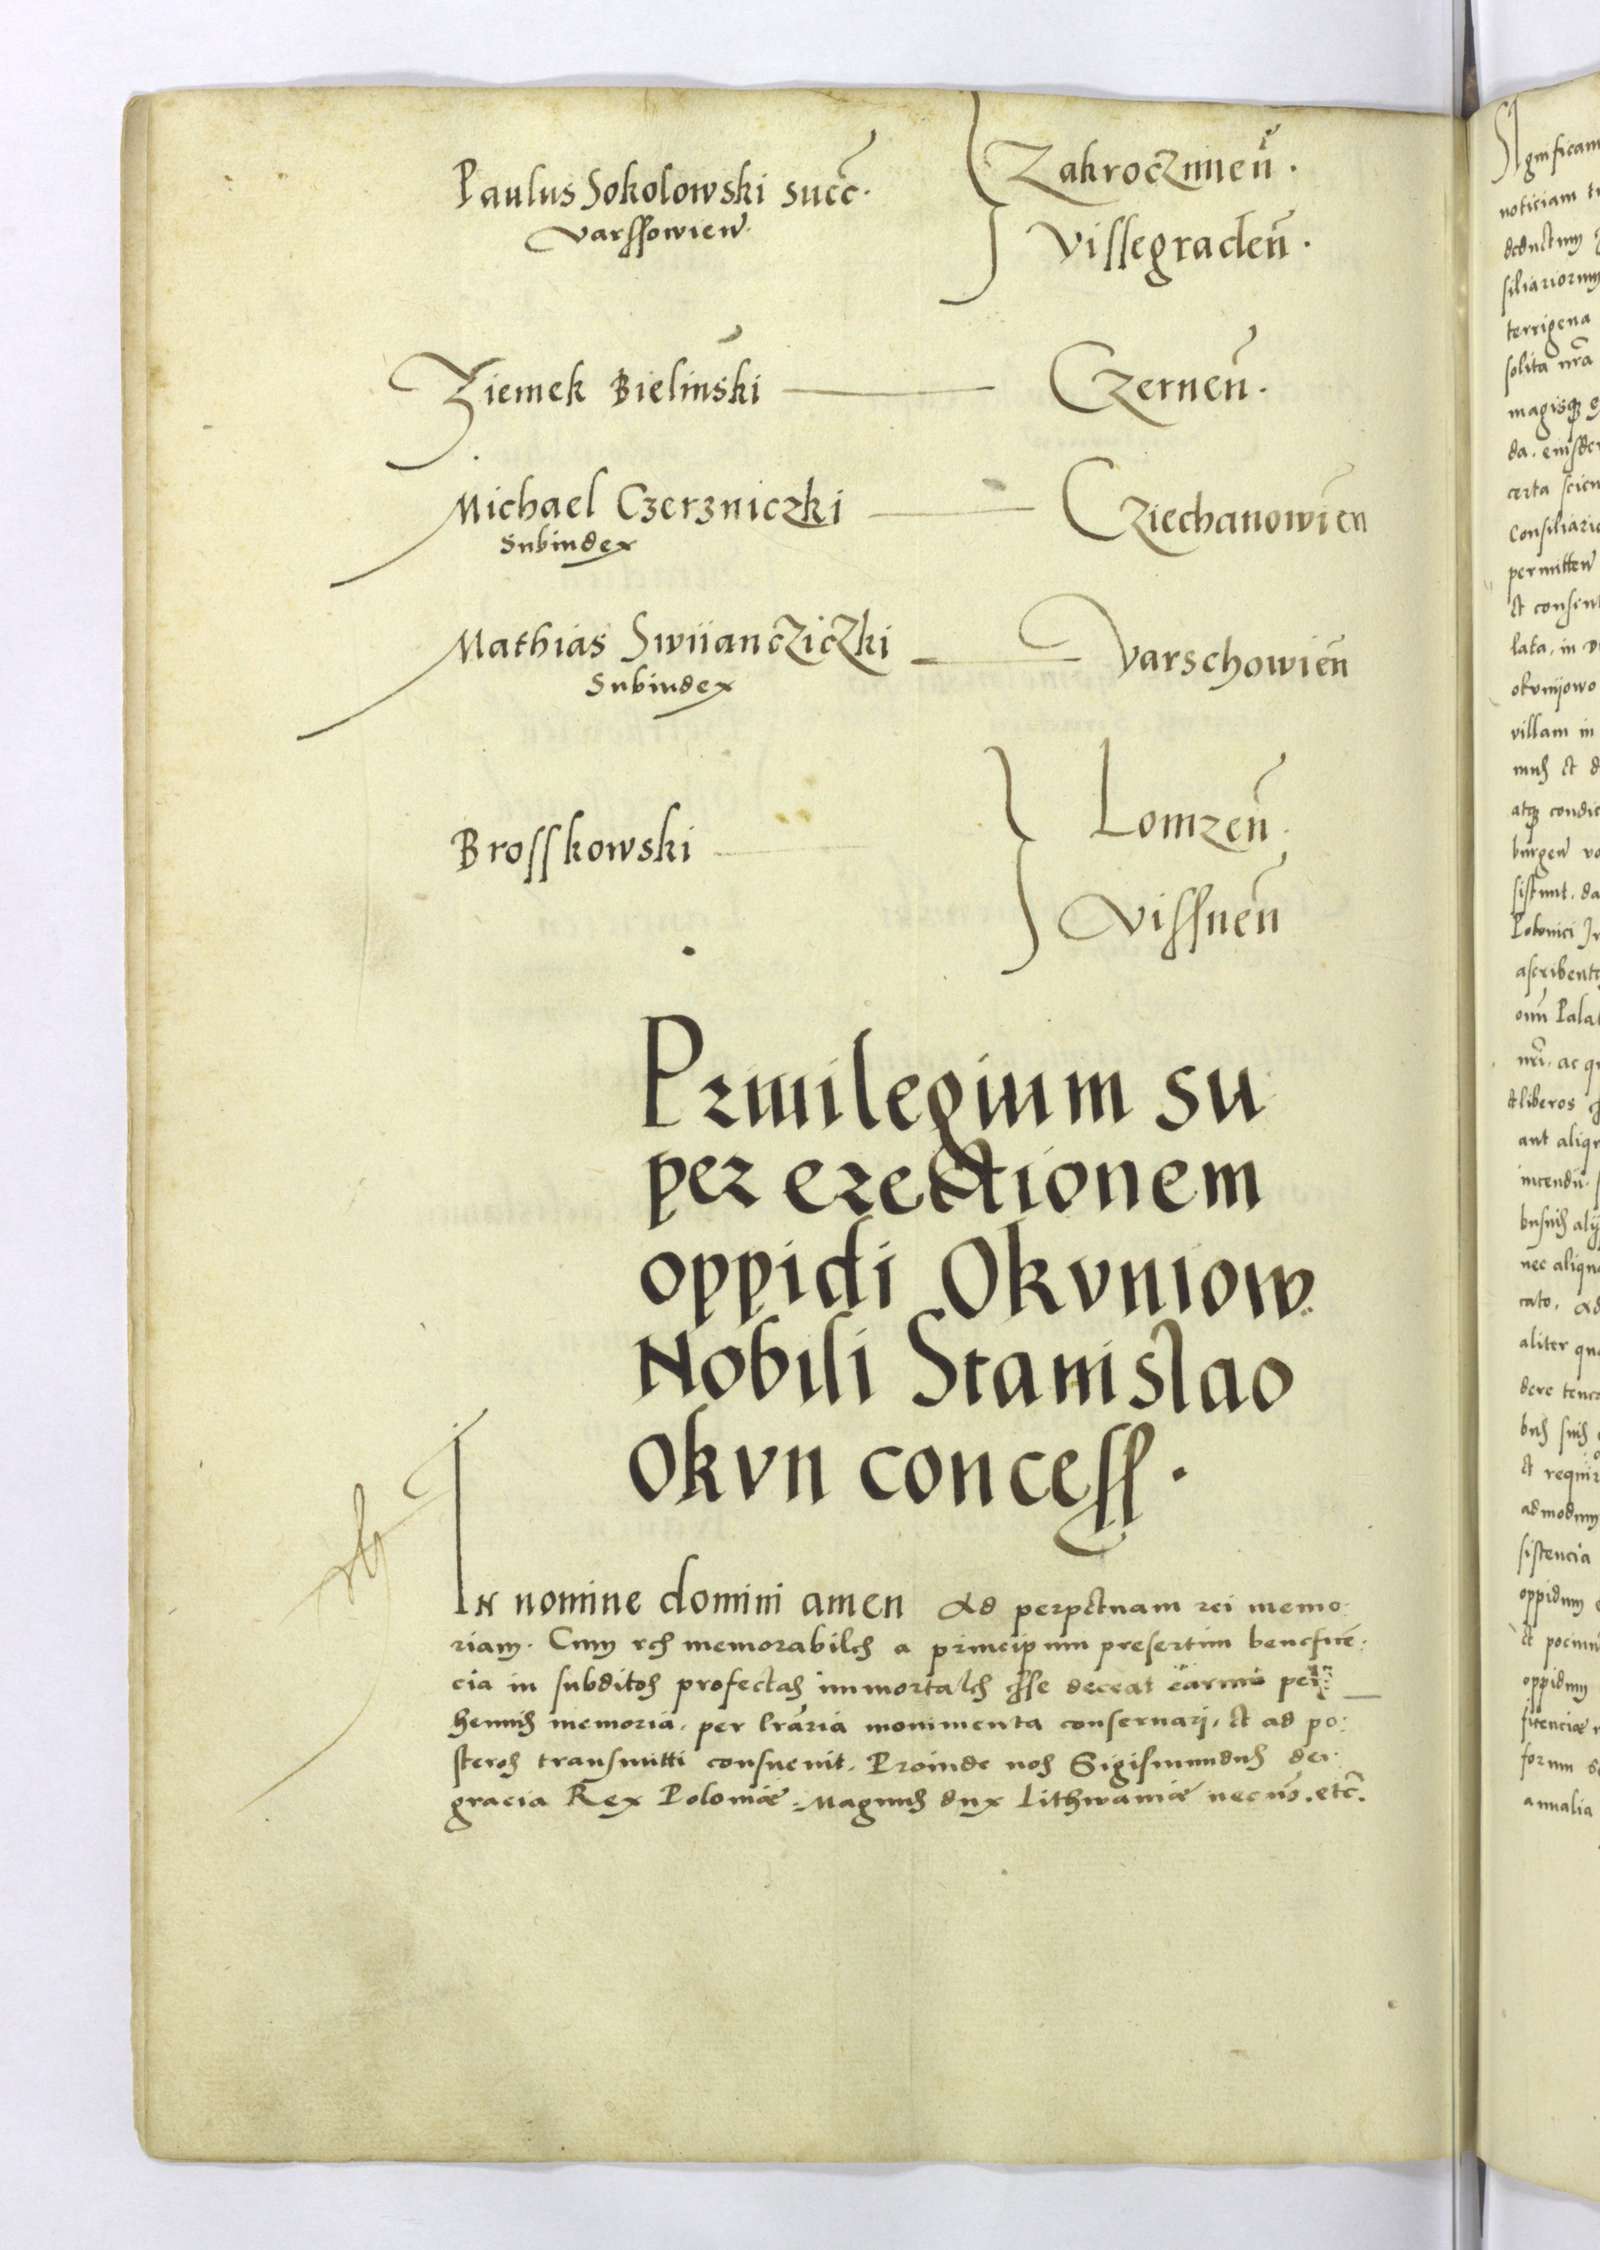 Paulus Sokolowski succ̄.
varssowien̄.
Zakroczimen̄.
Vissegraden̄.
Ziemek Bielinski — Czernen̄.
Michael Czerzniczki — Cziechanowien̄
Subiudex
Mathias Swiianczickzki — Varschowien̄
Subiudex
Brosskowski
Lomzen̄.
Vissnen̄
Priuilegium su
per erectionem
oppidi Okvniow
Nobili Stanislao
Okvn concess.
In nomine domini amen Ad perpetuam rei memo:
riam. Cum res memorabiles a principum presertim beneficē:
cia in subditos profectas immortales esse deceat earum per:
hennis memoria, per lrāria monimenta conseruari, et ad po:
steros transmitti consueuit. Proinde nos Sigismundus dei
gracia Rex Poloniæ, Magnus dux Lithwaniæ necnō. etc̄.
Significam
noticiam
deductum
siliariorum
terrigena
solita nrā
magisque
da. eiusde
certa scien
Consiliario
permitten̄
et consent
lata, in
okvniiowo
villam in
mus et
atque condic
burgen̄
sistunt. da
Polonici
ascribent
om̄ Pala
nrī. ac
et liberos
aut aliqu
incendii.
busuis alij
nec aliqu
cato. Ad
aliter qu
dere tene
bus suis
et requir
admodum
sistencia
oppidum
et pocium
oppidum
ficenciæ
forum
annalia